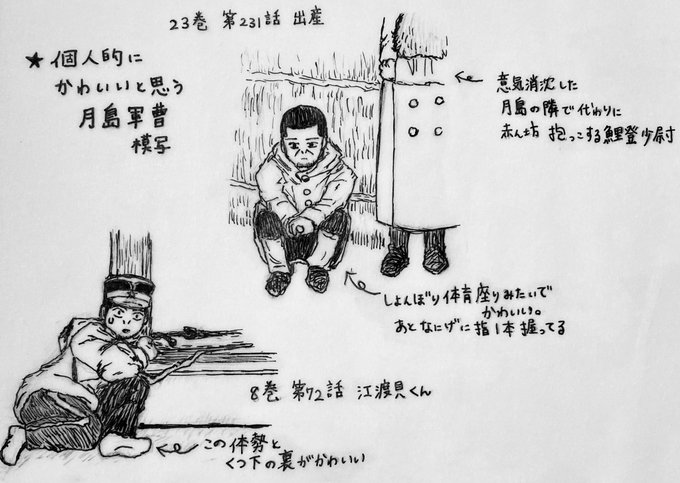 23巻 第231話 出産
★個人的に
かわいいと思う
月島軍曹
模写
意気消沈した
月島の隣で代わりに
赤ん坊 抱っこする鯉登少尉
しょんぼり体育座りみたいで
かわいい。
あとなにげに指1本握ってる
8巻 第72話 江渡貝くん
この体勢と
くつ下の裏がかわいい